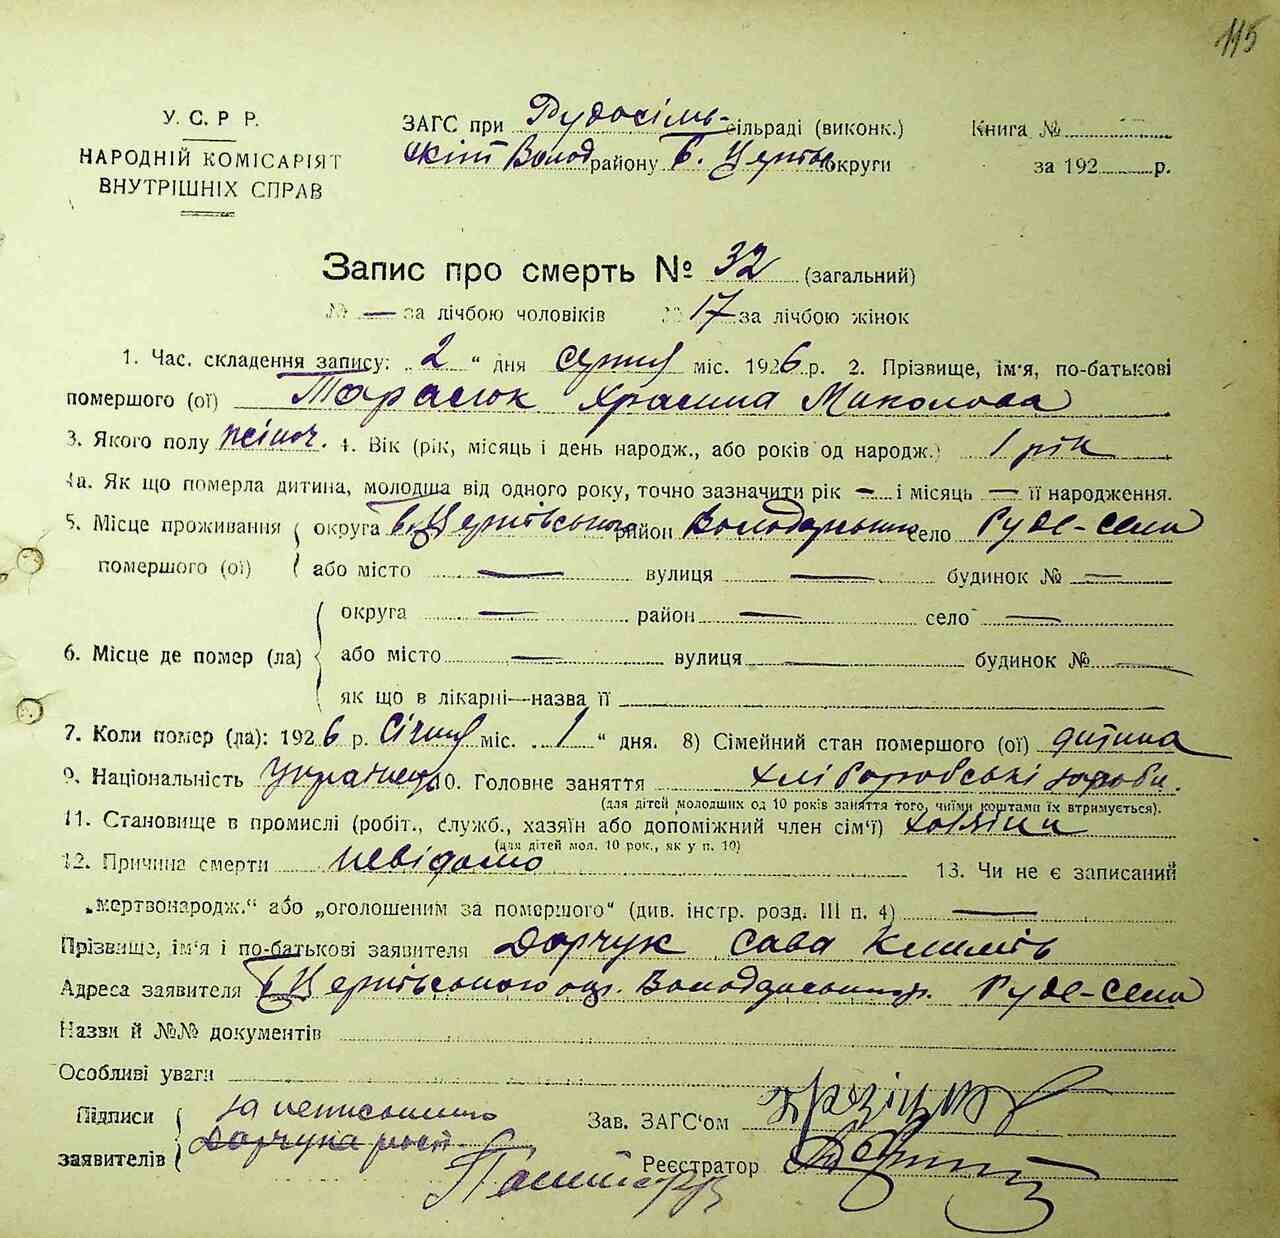 115
У. С. Р Р.
НАРОДНІЙ КОМІСАРІЯТ
ВНУТРІШНІХ СПРАВ
ЗАГС при Рудосіль- сільраді (виконк.)
Волод району Б. Церків округи
Книга №
за 192 р.
Запис про смерть № 32 (загальний)
№ — за лічбою чоловіків № 17 за лічбою жінок
1. Час. складення запису: „2“ дня серпня міс. 1926 р. 2. Прізвище, ім'я, по-батькові
помершого (ої) Тарасюк Храсина Миколова
3. Якого полу жіноч. 4. Вік (рік, місяць і день народж., або років од народж.) 1 рік
4а. Як що померла дитина, молодша від одного року, точно зазначити рік — і місяць — її народження.
5. Місце проживання помершого (ої) округа Б. Церківського район Володарського село Руде-Село
або місто — вулиця — будинок № —
6. Місце де помер (ла) округа — район — село —
або місто — вулиця — будинок № —
як що в лікарні—назва її
7. Коли помер (ла): 1926 р. Січня міс. „1“ дня. 8) Сімейний стан помершого (ої) дитина
9. Національність українець 10. Головне заняття хліборобські
(для дітей молодших од 10 років заняття того, чиїми коштами їх втримується).
11. Становище в промислі (робіт., служб., хазяїн або допоміжний член сім'ї) хазяїн
(для дітей мол. 10 рок., як у п. 10)
12. Причина смерти невідомо 13. Чи не є записаний
„мертвонародж.“ або „оголошеним за помершого“ (див. інстр. розд. III п. 4) —
Прізвище, ім'я і по-батькові заявителя Дорчук Сава Климів
Адреса заявителя Б Церківського окр. Володарського р. Руде-Село
Назви й №№ документів
Особливі уваги
Підписи заявителів за неписьменого
Дорчука
Зав. ЗАГС'ом
Реєстратор